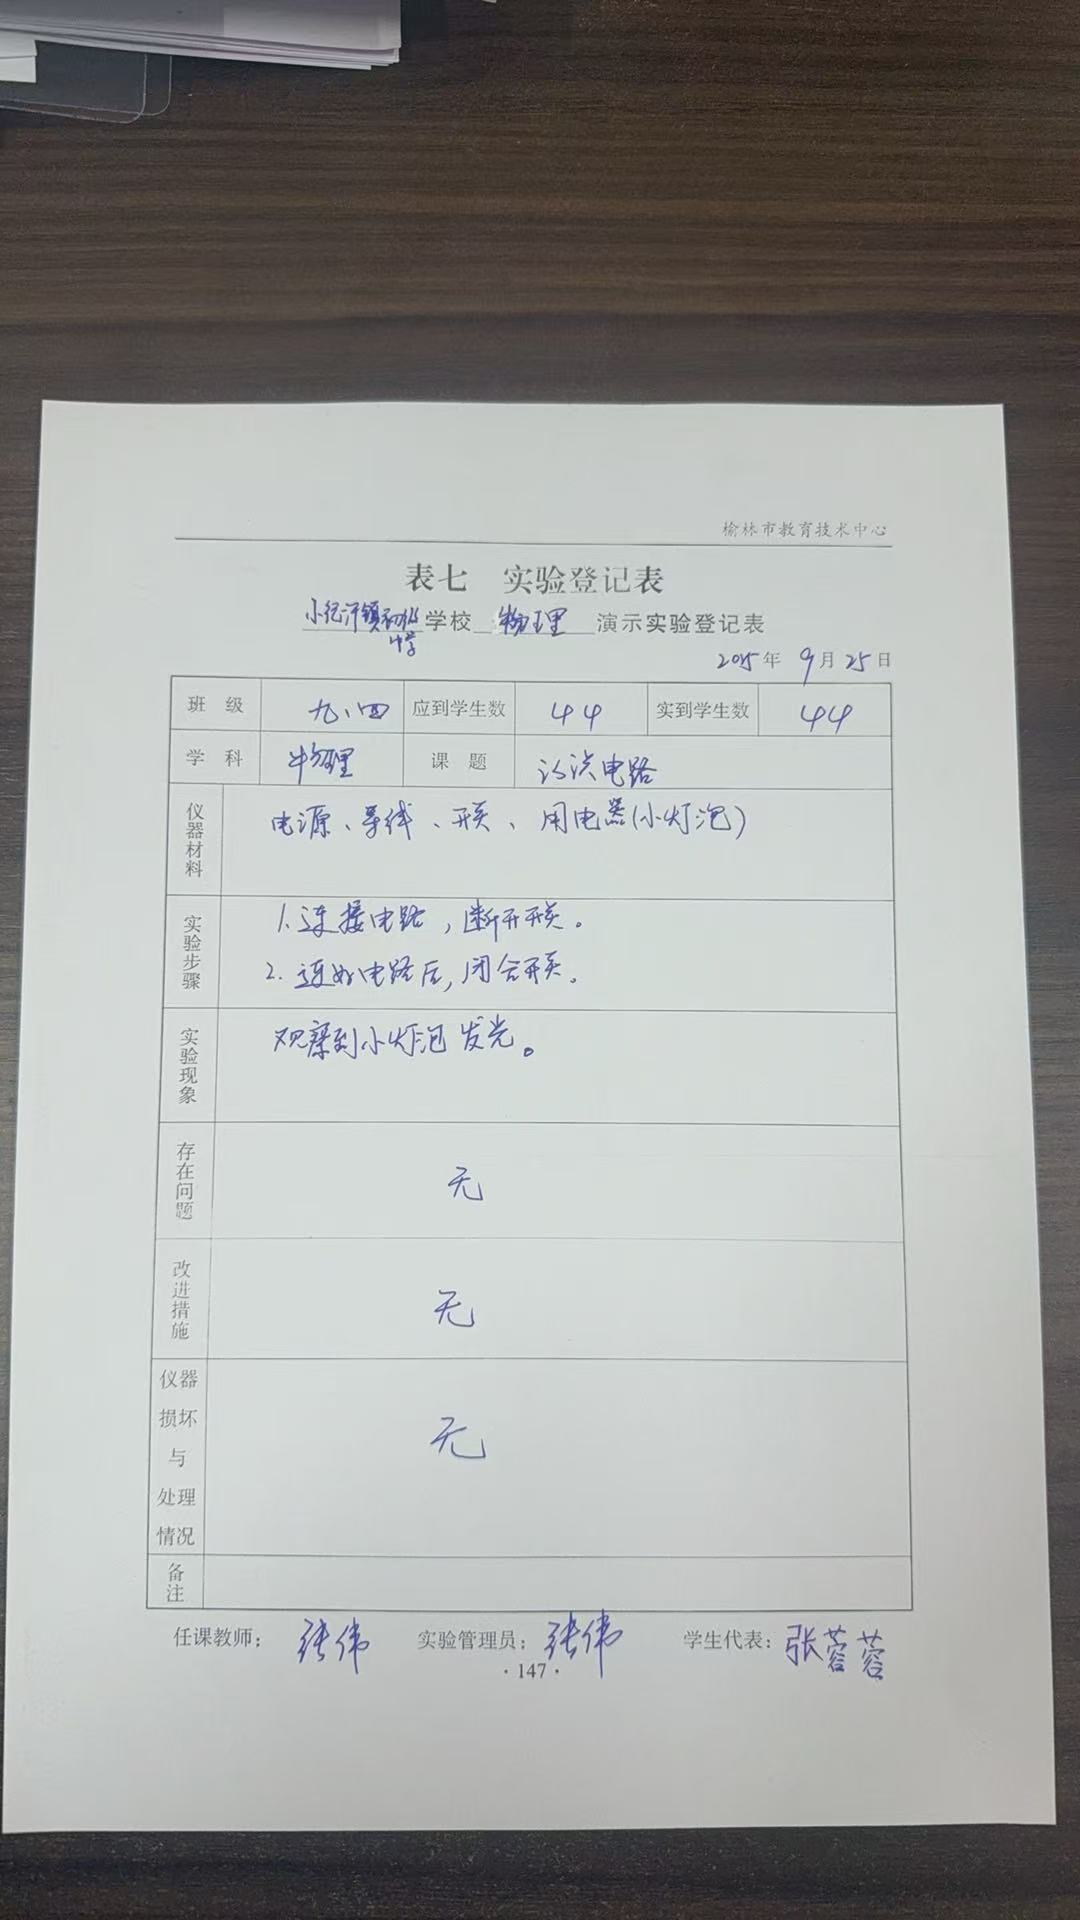 榆林市教育技术中心
表七 实验登记表
小纪汗镇初级中学学校 物理 演示实验登记表
2025年 9月25日
班 级 九、四 应到学生数 44 实到学生数 44
学 科 物理 课 题 认识电路
仪器材料 电源、导线、开关、用电器(小灯泡)
实验步骤 1.连接电路,断开开关。
2.连好电路后,闭合开关。
实验现象 观察到小灯泡发光。
存在问题 无
改进措施 无
仪器
损坏
与 无
处理
情况
备注
任课教师: 张伟 实验管理员: 张伟 学生代表: 张蓉蓉
· 147 ·